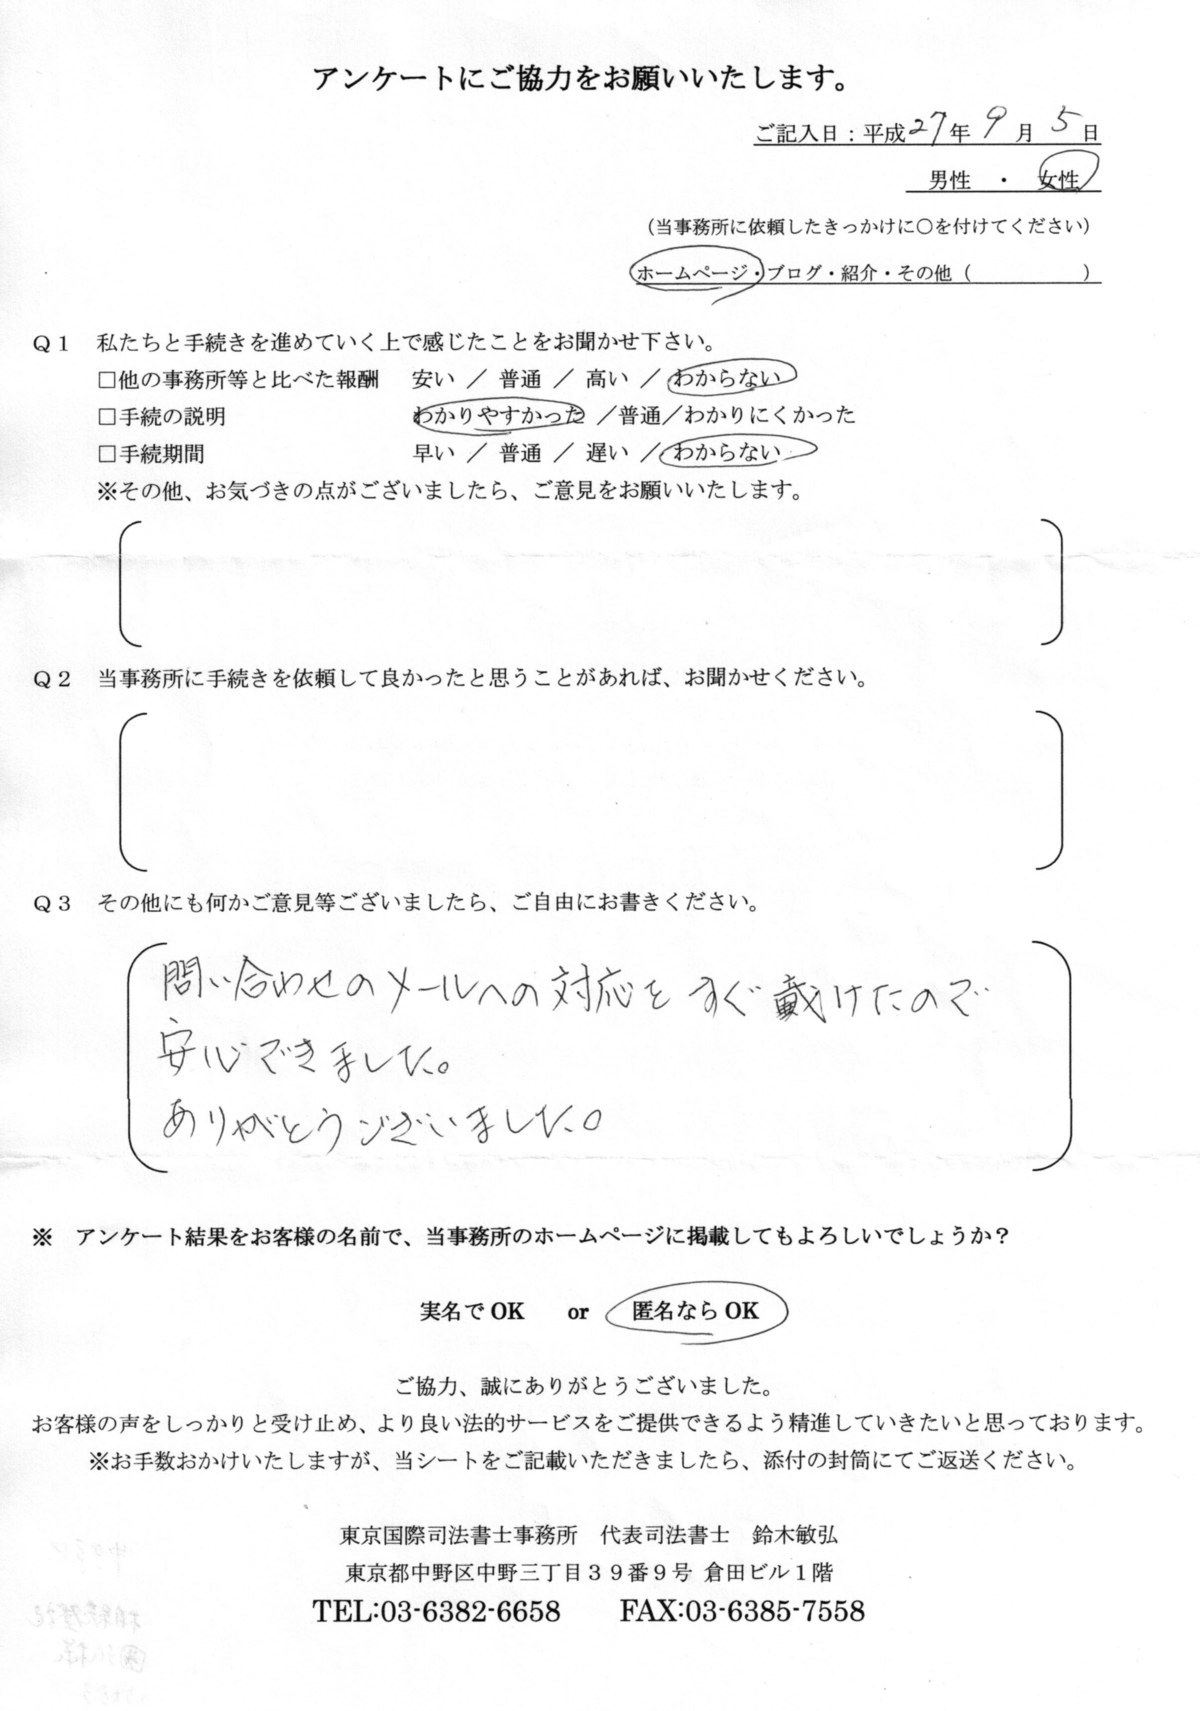 アンケートにご協力をお願いいたします。
ご記入日:平成27年 9月 5日
男性 ・ 女性
(当事務所に依頼したきっかけに○を付けてください)
ホームページ・ブログ・紹介・その他( )
Q1 私たちと手続きを進めていく上で感じたことをお聞かせ下さい。
□他の事務所等と比べた報酬 安い / 普通 / 高い / わからない
□手続の説明 わかりやすかった /普通/わかりにくかった
□手続期間 早い / 普通 / 遅い / わからない
※その他、お気づきの点がございましたら、ご意見をお願いいたします。
Q2 当事務所に手続きを依頼して良かったと思うことがあれば、お聞かせください。
Q3 その他にも何かご意見等ございましたら、ご自由にお書きください。
問い合わせのメールへの対応をすぐ戴けたので
安心できました。
ありがとうございました。
※ アンケート結果をお客様の名前で、当事務所のホームページに掲載してもよろしいでしょうか?
実名で OK or 匿名なら OK
ご協力、誠にありがとうございました。
お客様の声をしっかりと受け止め、より良い法的サービスをご提供できるよう精進していきたいと思っております。
※お手数おかけいたしますが、当シートをご記載いただきましたら、添付の封筒にてご返送ください。
東京国際司法書士事務所 代表司法書士 鈴木敏弘
東京都中野区中野三丁目39番9号 倉田ビル1階
TEL:03-6382-6658 FAX:03-6385-7558